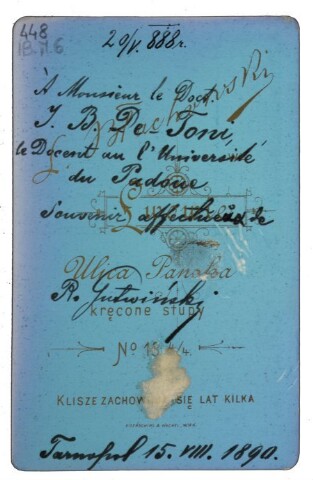 448
IB.M.6
20/V. 888r.
À Monsieur le Doct.
J. B. De-Toni,
le Docent au l'Université
du Padoue
Souvenir affectueux de
Ulica Pańska
R. Gutwiński
kręcone słupy
No 13
KLISZE ZACHOWUJĄ SIĘ LAT KILKA
Tarnopol 15. VIII. 1890.